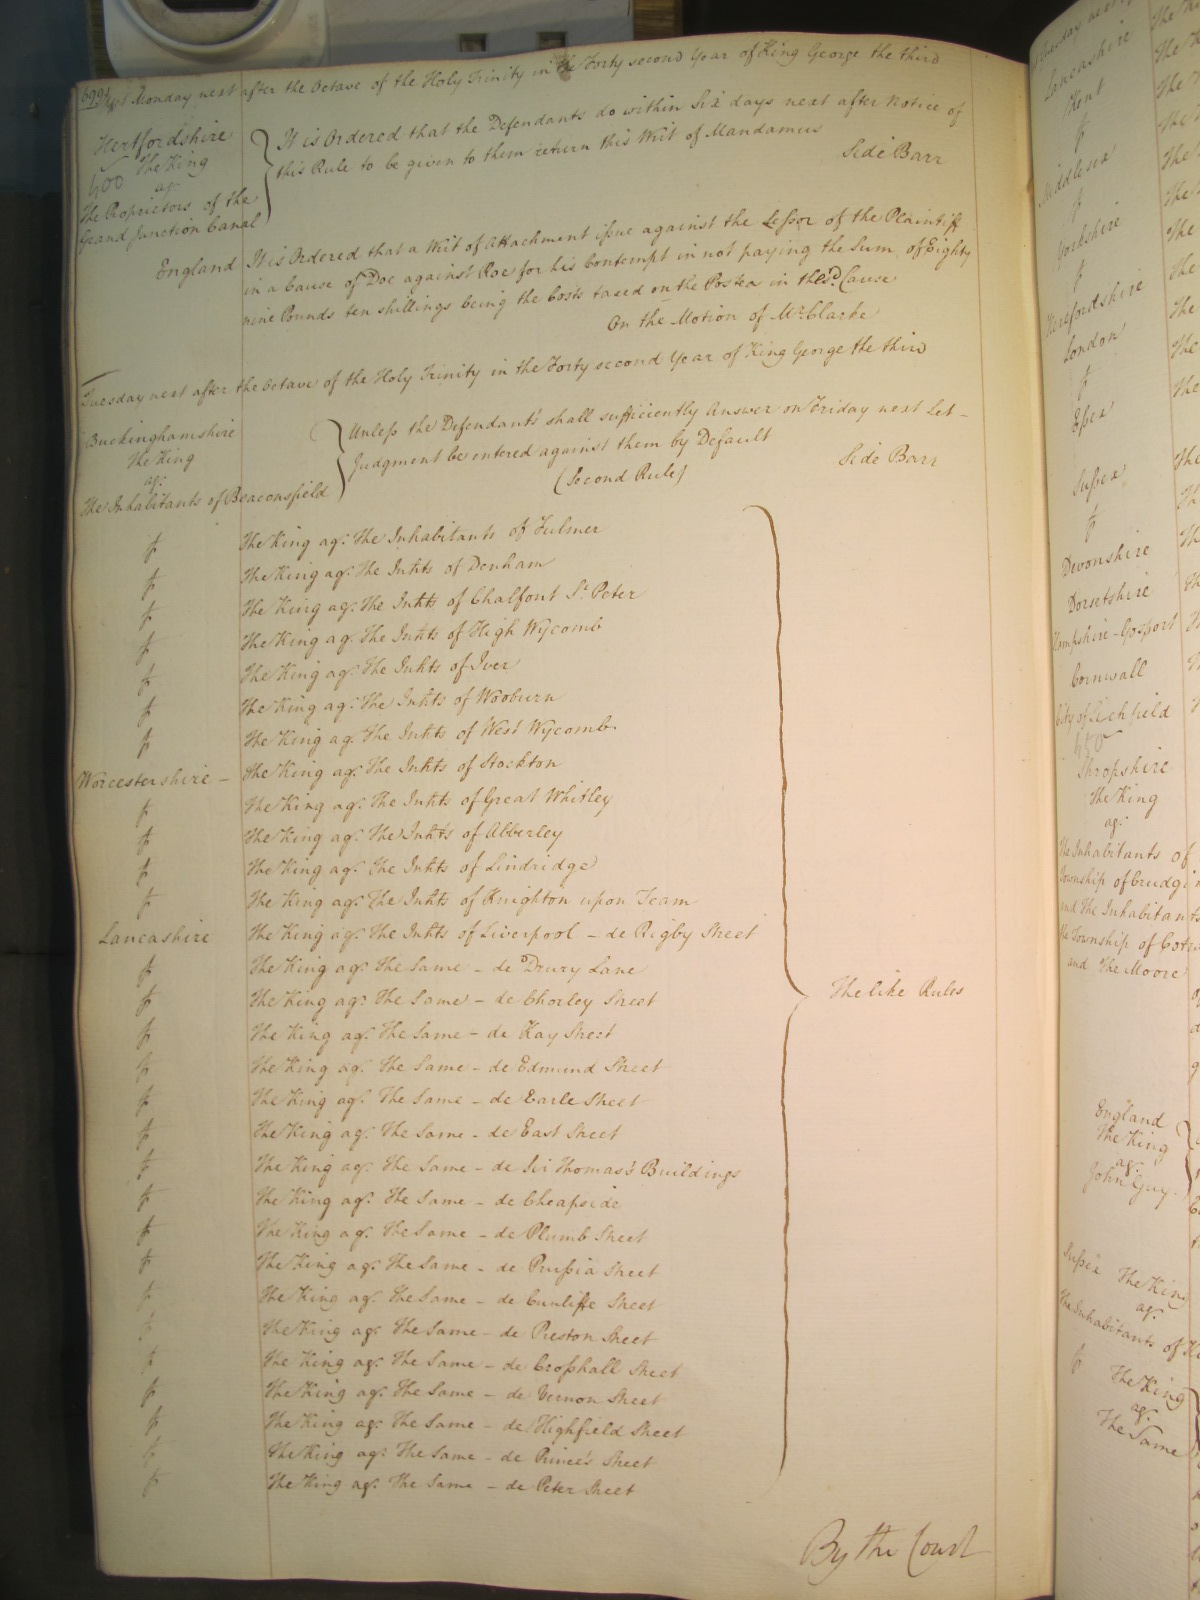 Monday next after the Octave of the Holy Trinity in the Forty second Year of King George the third
Hertfordshire
The King
agt.
The Proprietors of the
Grand Junction Canal
It is Ordered that the Defendants do within Six days next after Notice of
this Rule to be given to them return this Writ of Mandamus
Side Barr
England
It is Ordered that a Writ of Attachment issue against the Lessor of the Plaintiff
in a Cause of Doe against Roe for his Contempt in not paying the Sum of Eighty
nine Pounds ten shillings being the Costs taxed on the Postea in the sd. Cause
On the Motion of Mr. Clarke
Tuesday next after the Octave of the Holy Trinity in the Forty second Year of King George the third
Buckinghamshire
The King
agt.
The Inhabitants of Beaconsfield
Unless the Defendants shall sufficiently Answer on Friday next Let -
Judgment be entered against them by Default
(Second Rule)
Side Barr
The King agt. The Inhabitants of Fulmer
The King agt. The Inhts of Denham
The King agt. The Inhts of Chalfont St. Peter
The King agt. The Inhts of High Wycomb
The King agt. The Inhts of Iver
The King agt. The Inhts of Wooburn
The King agt. The Inhts of West Wycomb
Worcestershire - The King agt. The Inhts of Stockton
The King agt. The Inhts of Great Whitley
The King agt. The Inhts of Abberley
The King agt. The Inhts of Lindridge
The King agt. The Inhts of Knighton upon Team
Lancashire The King agt. The Inhts of Liverpool - de Rigby Street
The King agt. The Same - de Drury Lane
The King agt. The Same - de Chorley Street
The like Rules
The King agt. The Same - de Kay Street
The King agt. The Same - de Edmund Street
The King agt. The Same - de Earle Street
The King agt. The Same - de East Street
The King agt. The Same - de Sir Thomas's Buildings
The King agt. The Same - de Cheapside
The King agt. The Same - de Plumb Street
The King agt. The Same - de Prussia Street
The King agt. The Same - de Cunliffe Street
The King agt. The Same - de Preston Street
The King agt. The Same - de Crosshall Street
The King agt. The Same - de Vernon Street
The King agt. The Same - de Highfield Street
The King agt. The Same - de Prince's Street
The King agt. The Same - de Peter Street
By the Court
Lancashire
Kent
Middlesex
Yorkshire
Herefordshire
London
Essex
Sussex
Devonshire
Dorsetshire
Hampshire - Gosport
Cornwall
City of Lichfield
Shropshire
The King
agt.
The Inhabitants of
Township of
and the Inhabitants
the Township of
and The Moore
England
The King
agt.
John Guy
Sussex The King
agt.
The Inhabitants of
The King
agt.
The Same